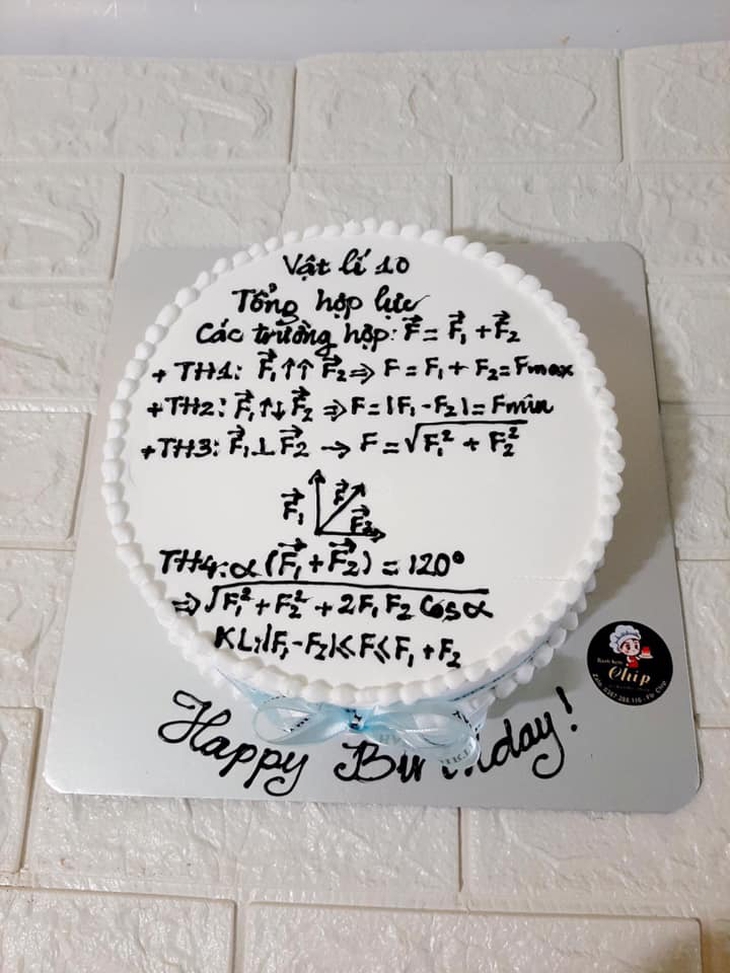 Vật lí 10
Tổng hợp lực
Các trường hợp: F⃗ = F⃗₁ + F⃗₂
+ TH1: F⃗₁↑↑F⃗₂ => F = F₁ + F₂ = Fmax
+ TH2: F⃗₁↑↓F⃗₂ => F = |F₁ - F₂| = Fmin
+ TH3: F⃗₁⊥F⃗₂ → F = √(F₁² + F₂²)
F⃗₁ F⃗ F⃗₂
TH4: α (F⃗₁ + F⃗₂) = 120°
=> √(F₁² + F₂² + 2F₁F₂ Cosα)
KL: |F₁ - F₂| ≤ F ≤ F₁ + F₂
Chip
Happy Birthday!